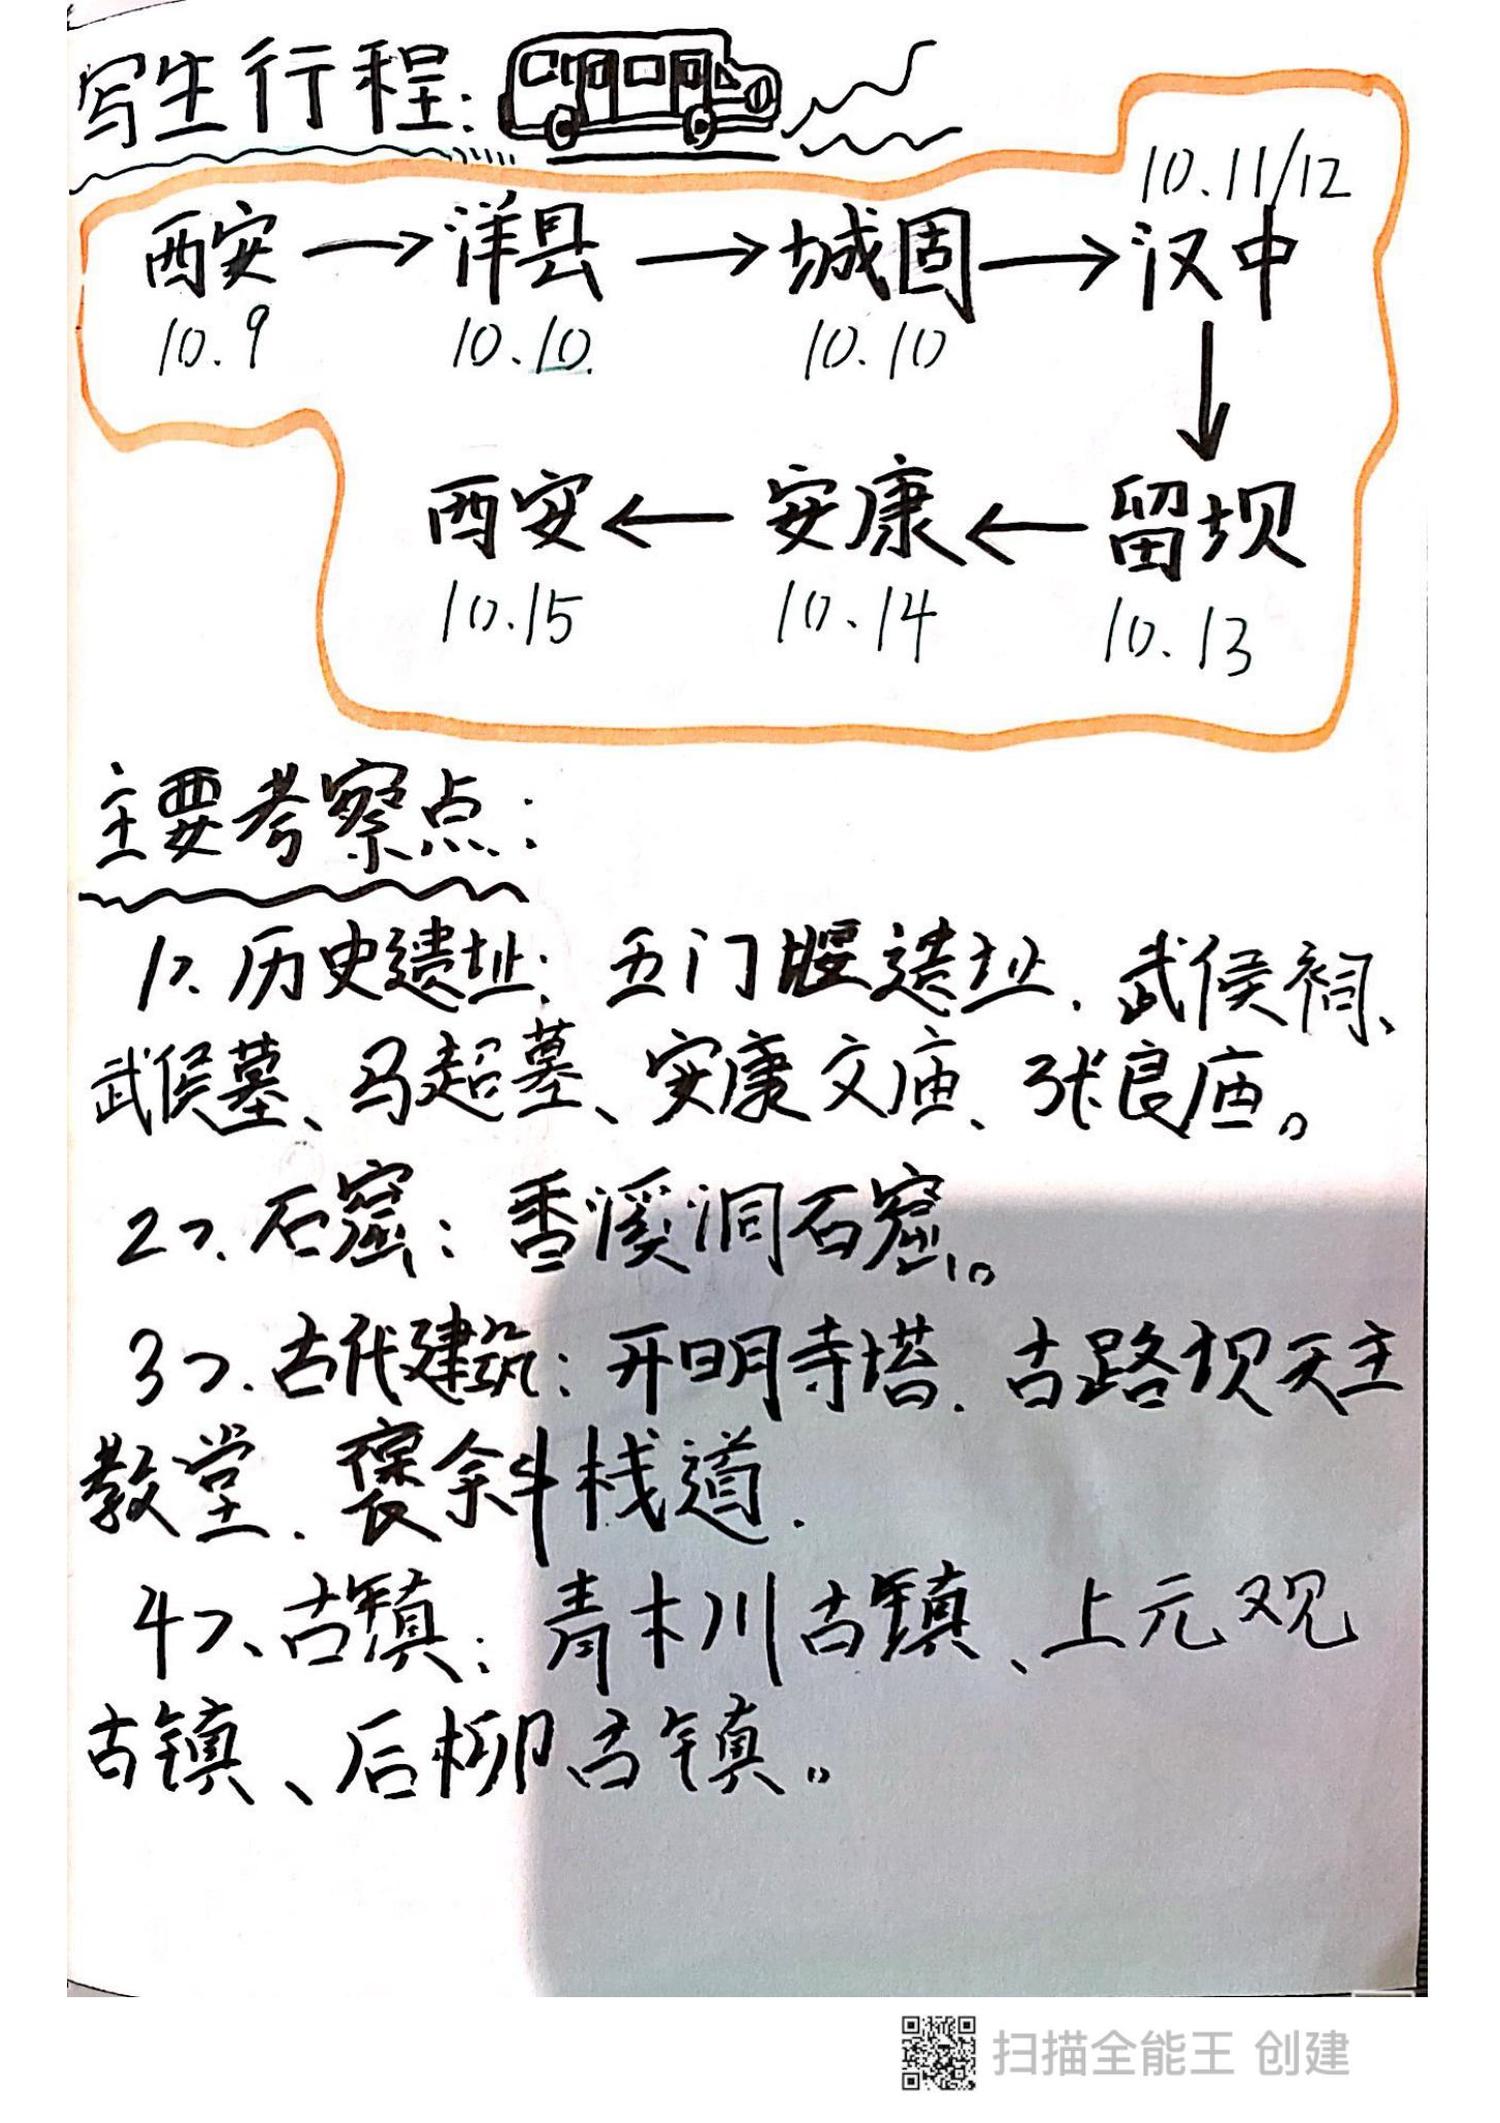 写生行程:
10.11/12
西安→洋县→城固→汉中
10.9 10.10 10.10
西安←安康←留坝
10.15 10.14 10.13
主要考察点:
1>.历史遗址:五门堰遗址.武侯祠、
武侯墓、马超墓、安康文庙、张良庙。
2>.石窟:香溪洞石窟。
3>.古代建筑:开明寺塔.古路坝天主
教堂.褒斜栈道.
4>、古镇:青木川古镇、上元观
古镇、后柳古镇。
扫描全能王 创建